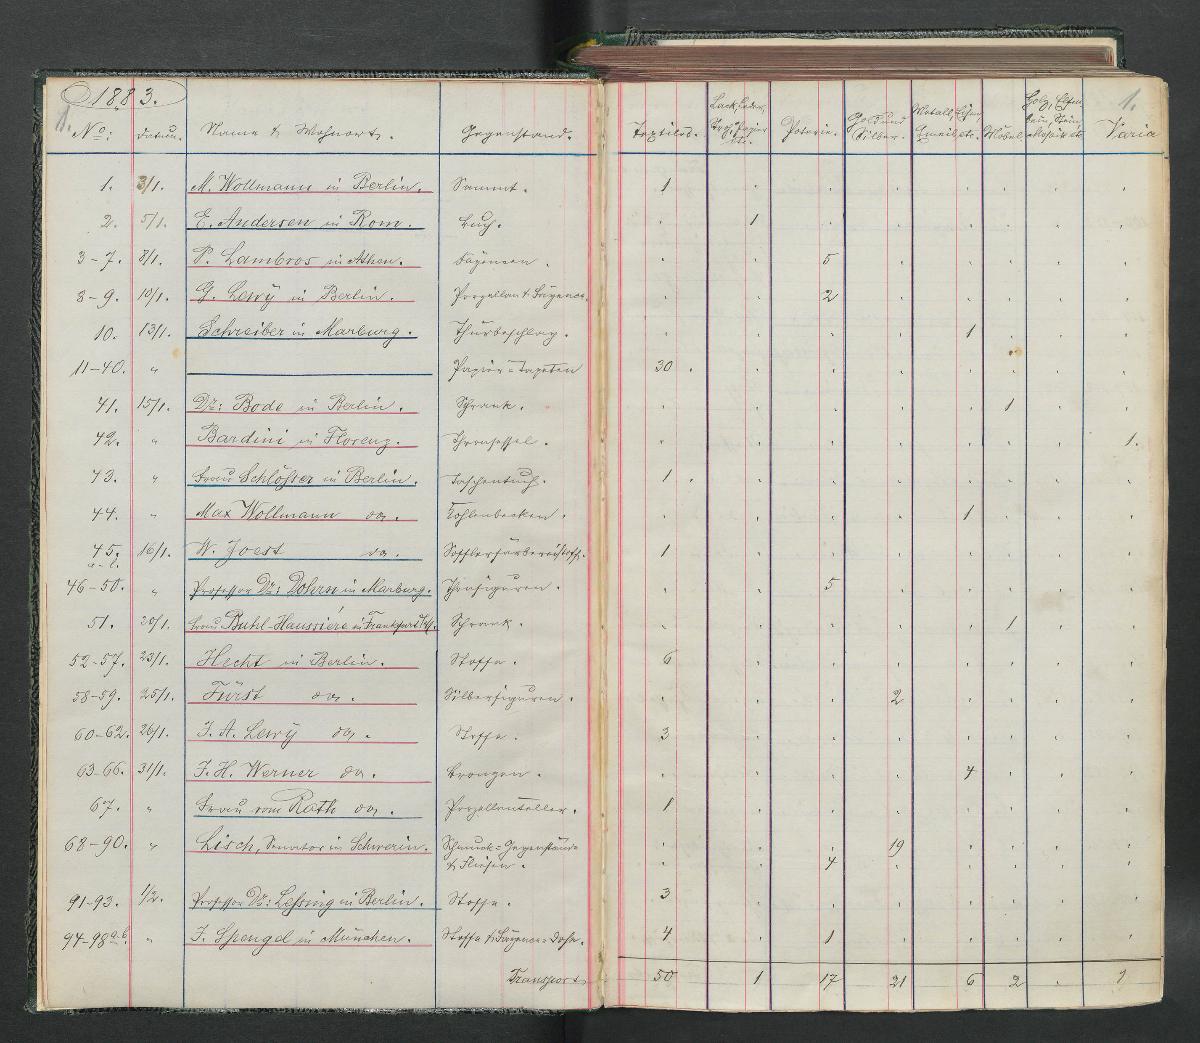 1883.
1. 1.
No: Datum. Name & Wohnort. Gegenstand. Textiles. Lack, Leder, Pappe, Papier etc. Poterie. Gold und Silber. Metall, Eisen, Emaille etc. Möbel. Holz, Elfenbein, Stein, Mosaik etc. Varia
1. 3/1. M. Wollmann in Berlin. Sammt. 1
2. 5/1. E. Andersen in Rom. Buch. 1
3-7. 8/1. P. Lambros in Athen. Fayencen. 5
8-9. 10/1. G. Lewy in Berlin. Porzellan & Fayence. 2
10. 13/1. Schreiber in Marburg. Thürbeschlag. 1
11-40. " Papier-Tapeten 30
41. 15/1. Dr: Bode in Berlin. Schrank. 1
42. " Bardini in Florenz. Thronsessel. 1.
43. " Frau Schlösser in Berlin. Taschentuch. 1
44. " Max Wollmann do. Kohlenbecken. 1
45. a-b. 16/1. W. Joest do. 1
46-50. " Professor Dr: Dohrn in Marburg. Thonfiguren. 5
51. 20/1. Frau Buhl-Haussière in Frankfurt a/M. Schrank. 1
52-57. 23/1. Hecht in Berlin. Stoffe. 6
58-59. 25/1. Fürst do. Silberfiguren. 2
60-62. 26/1. J. A. Lewy do. Stoffe. 3
63-66. 31/1. J. H. Werner do. Bronzen. 4
67. " Frau vom Rath do. Porzellanteller. 1
68-90. " Lisch, Senator in Schwerin. Schmuck-Gegenstände 19
& Fliesen. 4
91-93. 1/2. Professor Dr: Lessing in Berlin. Stoffe. 3
94-98 a.b. " J. Spengel in München. Stoffe & Fayence-Dose. 4 1
Transport 50 1 17 21 6 2 . 1